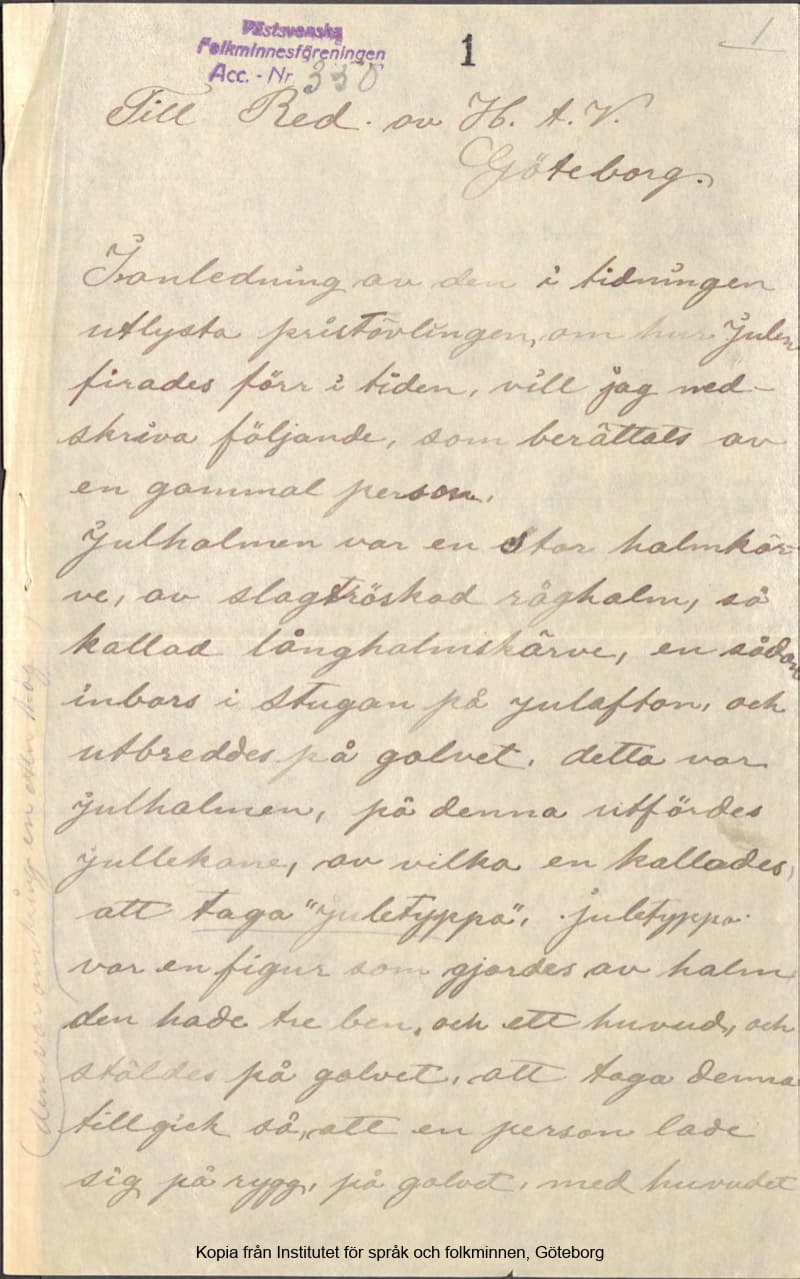 Västsvenska
Folkminnesföreningen
Acc. - Nr 350
1
1
Till Red. av H. A. V.
Göteborg.
I anledning av den i tidningen
utlysta pristävlingen, om hur Julen
firades förr i tiden, vill jag ned-
skriva följande, som berättats av
en gammal person.
Julhalmen var en stor halmkär-
ve, av slagtröskad råghalm, så
kallad långhalmskärve, en sådan
inbars i stugan på julafton, och
utbreddes på golvet, detta var
julhalmen, på denna utfördes
jullekarne, av vilka en kallades,
att taga "juletyppa", juletyppa
var en figur som gjordes av halm
den hade tre ben, och ett huvud, och
stäldes på golvet, att taga denna
tillgick så, att en person lade
sig på rygg, på golvet, med huvudet
den var omkring en aln hög
Kopia från Institutet för språk och folkminnen, Göteborg